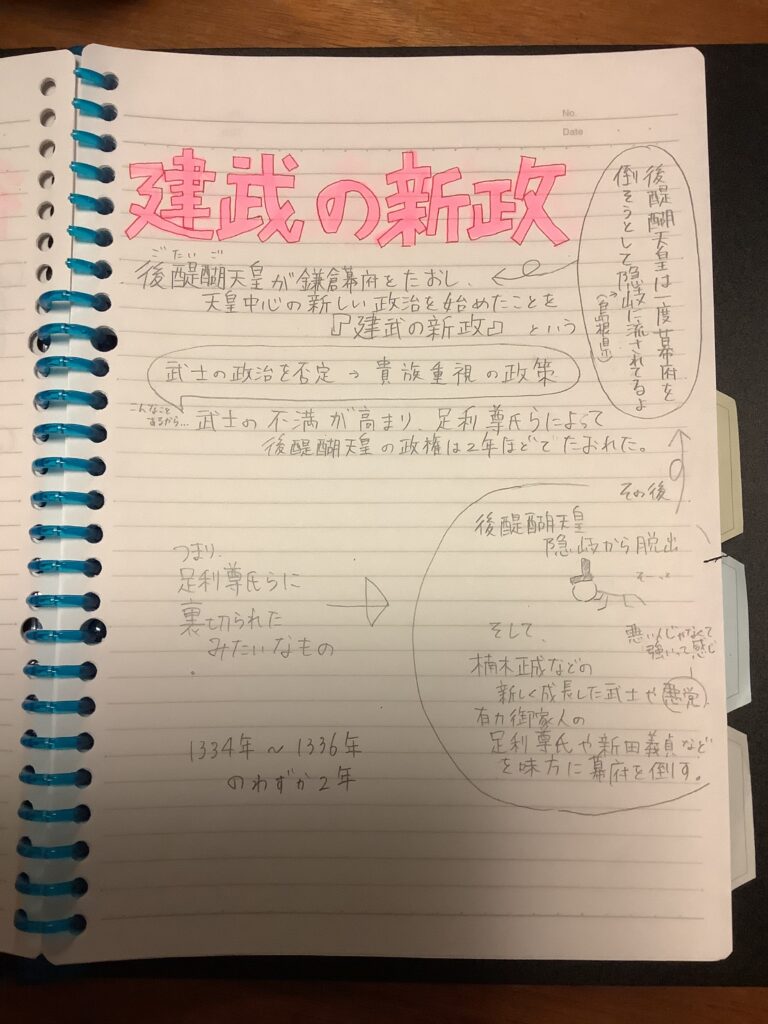 No.
Date
建武の新政
ごだいご
後醍醐天皇が鎌倉幕府をたおし、
天皇中心の新しい政治を始めたことを
『建武の新政』という
後醍醐天皇は一度幕府を
倒そうとして隠岐に流されてるよ
(島根県)
武士の政治を否定→貴族重視の政策
こんなこと
するから…
武士の不満が高まり、足利尊氏らによって
後醍醐天皇の政権は2年ほどでたおれた。
その後
後醍醐天皇
隠岐から脱出
そーっと
そして、
悪い人じゃなくて
強いって感じ
楠木正成などの
新しく成長した武士や悪党、
有力御家人の
足利尊氏や新田義貞など
を味方に幕府を倒す。
つまり、
足利尊氏らに
裏切られた
みたいなもの
1334年～1336年
のわずか2年